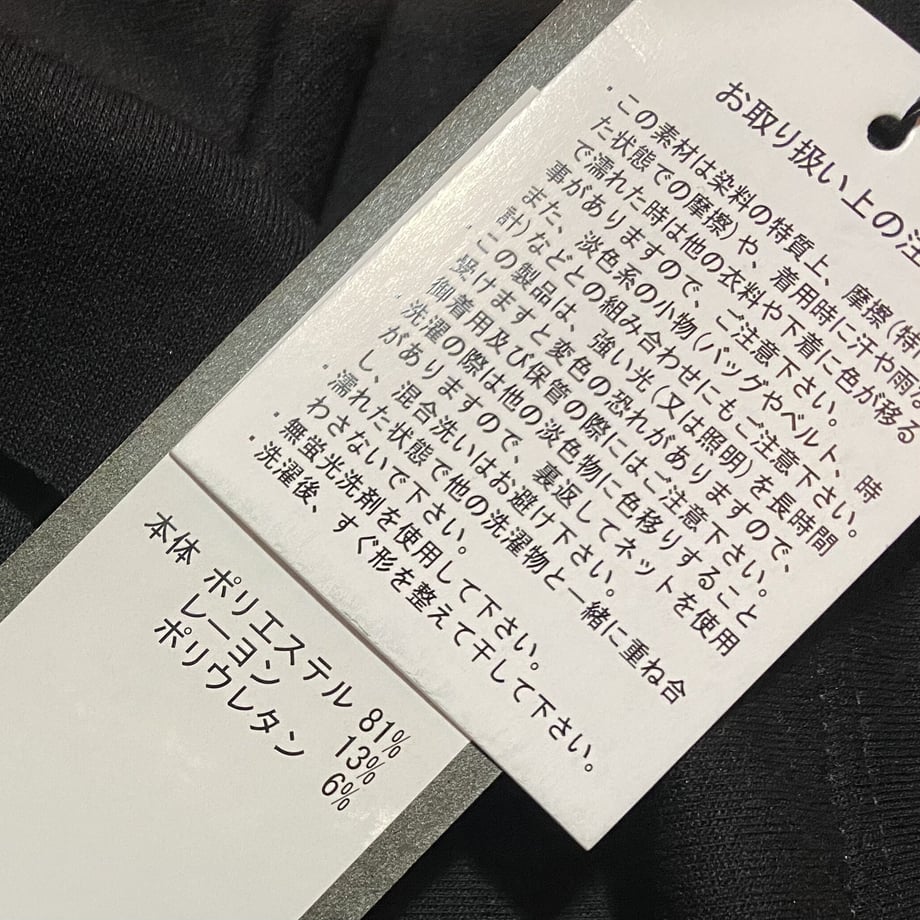 お取り扱い上の注
・この素材は染料の特質上、摩擦(特
た状態での摩擦)や、着用時に汗や雨
で濡れた時は他の衣料や下着に色が移る
事がありますので、ご注意下さい。
また、淡色系の小物(バッグやベルト、時
計)などとの組み合わせにもご注意下さい。
・この製品は、強い光(又は照明)を長時間
受けますと変色の恐れがありますので、
御着用及び保管の際にはご注意下さい。
・洗濯の際は他の淡色物に色移りすること
がありますので、裏返してネットを使用
し、混合洗いはお避け下さい。
・濡れた状態で他の洗濯物と一緒に重ね合
わさないで下さい。
・無蛍光洗剤を使用して下さい。
・洗濯後、すぐ形を整えて干して下さい。
本体 ポリエステル 81%
レーヨン 13%
ポリウレタン 6%